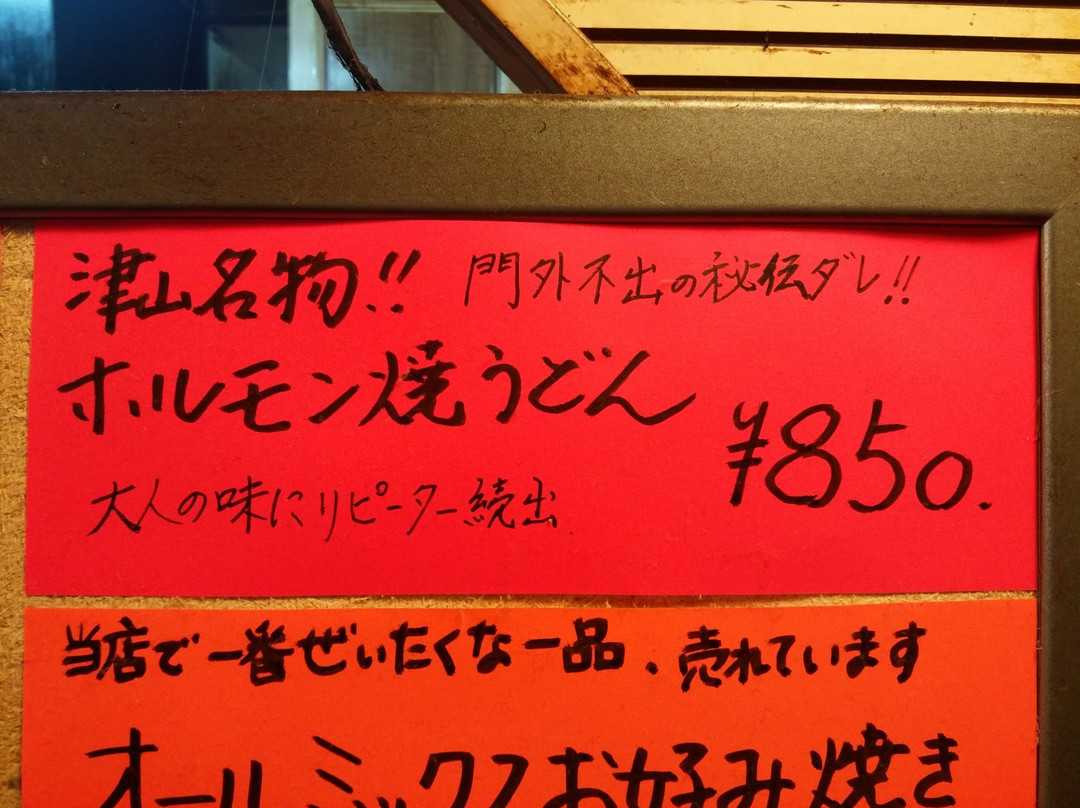 津山名物!! 門外不出の秘伝ダレ!!
ホルモン焼うどん
¥850.
大人の味にリピーター続出
当店で一番ぜいたくな一品、売れています
オールミックスお好み焼き